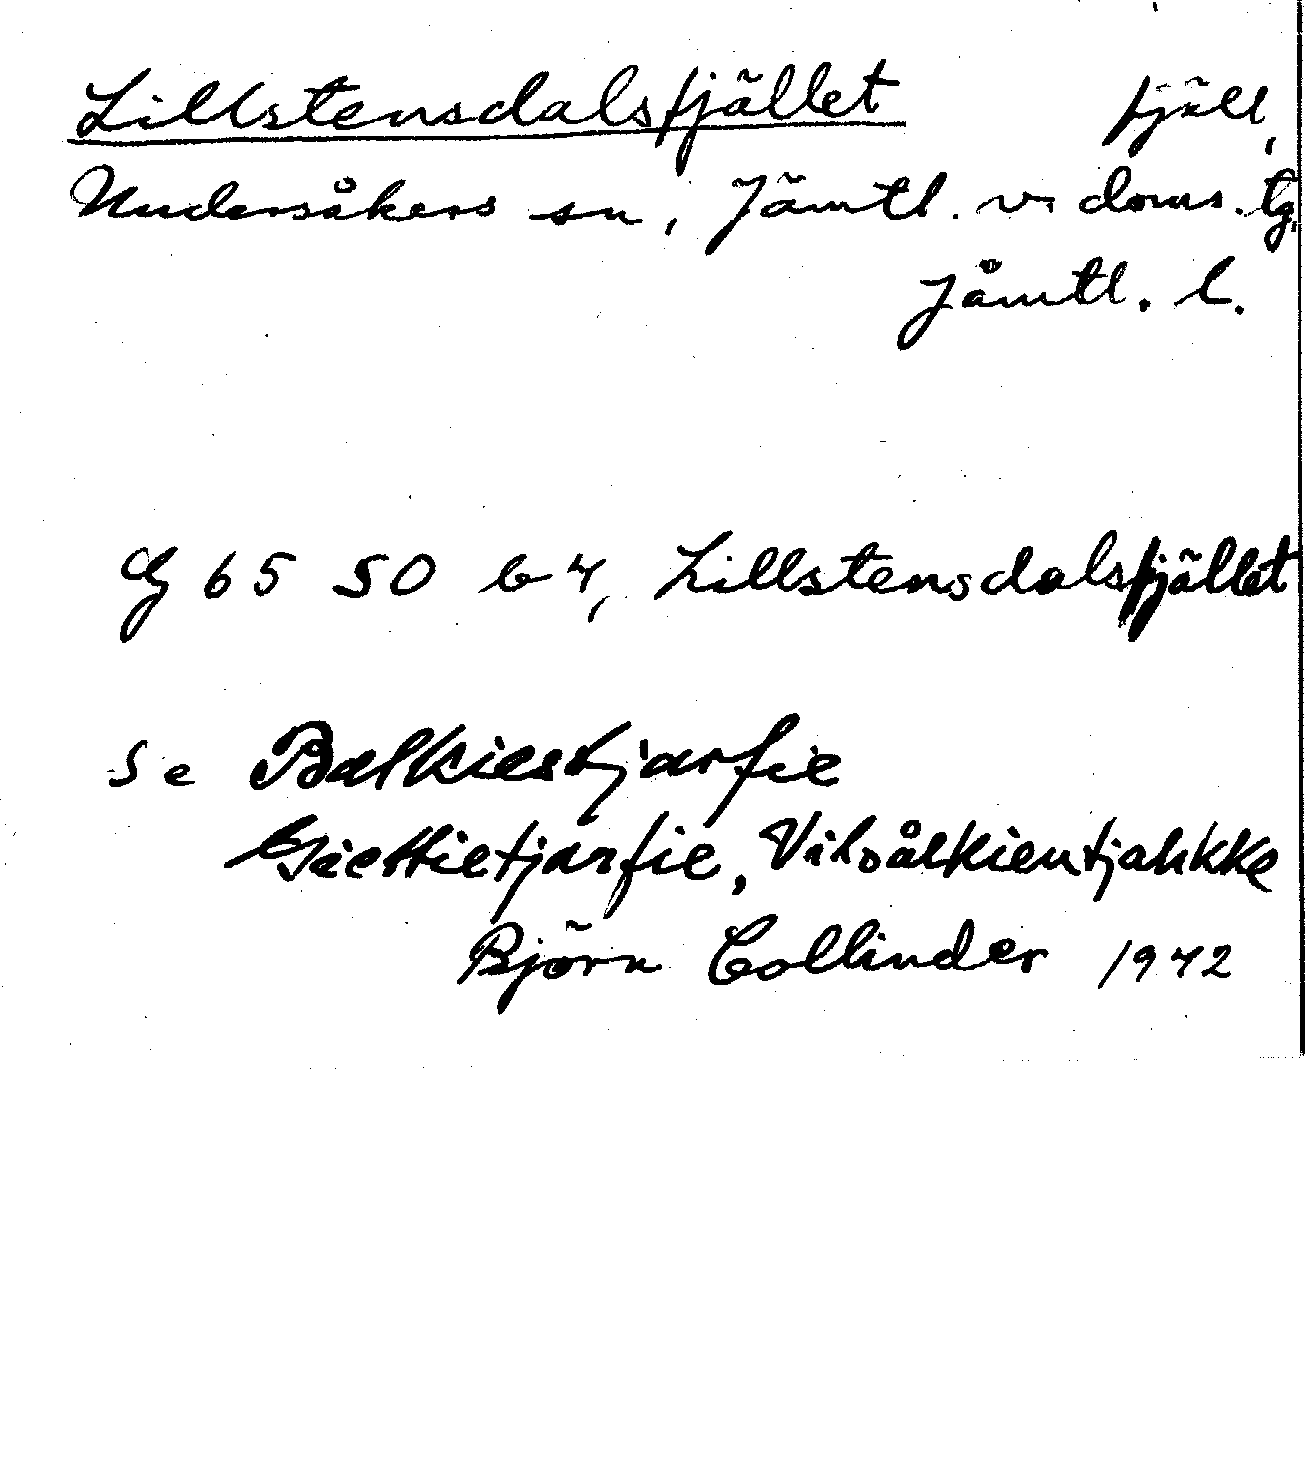 Lillstensdalsfjället fjäll,
Undersåkers sn, Jämtl. v. doms. tg,
Jämtl. l.
G 65 50 b 4, Lillstensdalsfjället
Se Balkiestjarfie
Giettietjarfie, Vilsålkientjahkke
Björn Collinder 1942